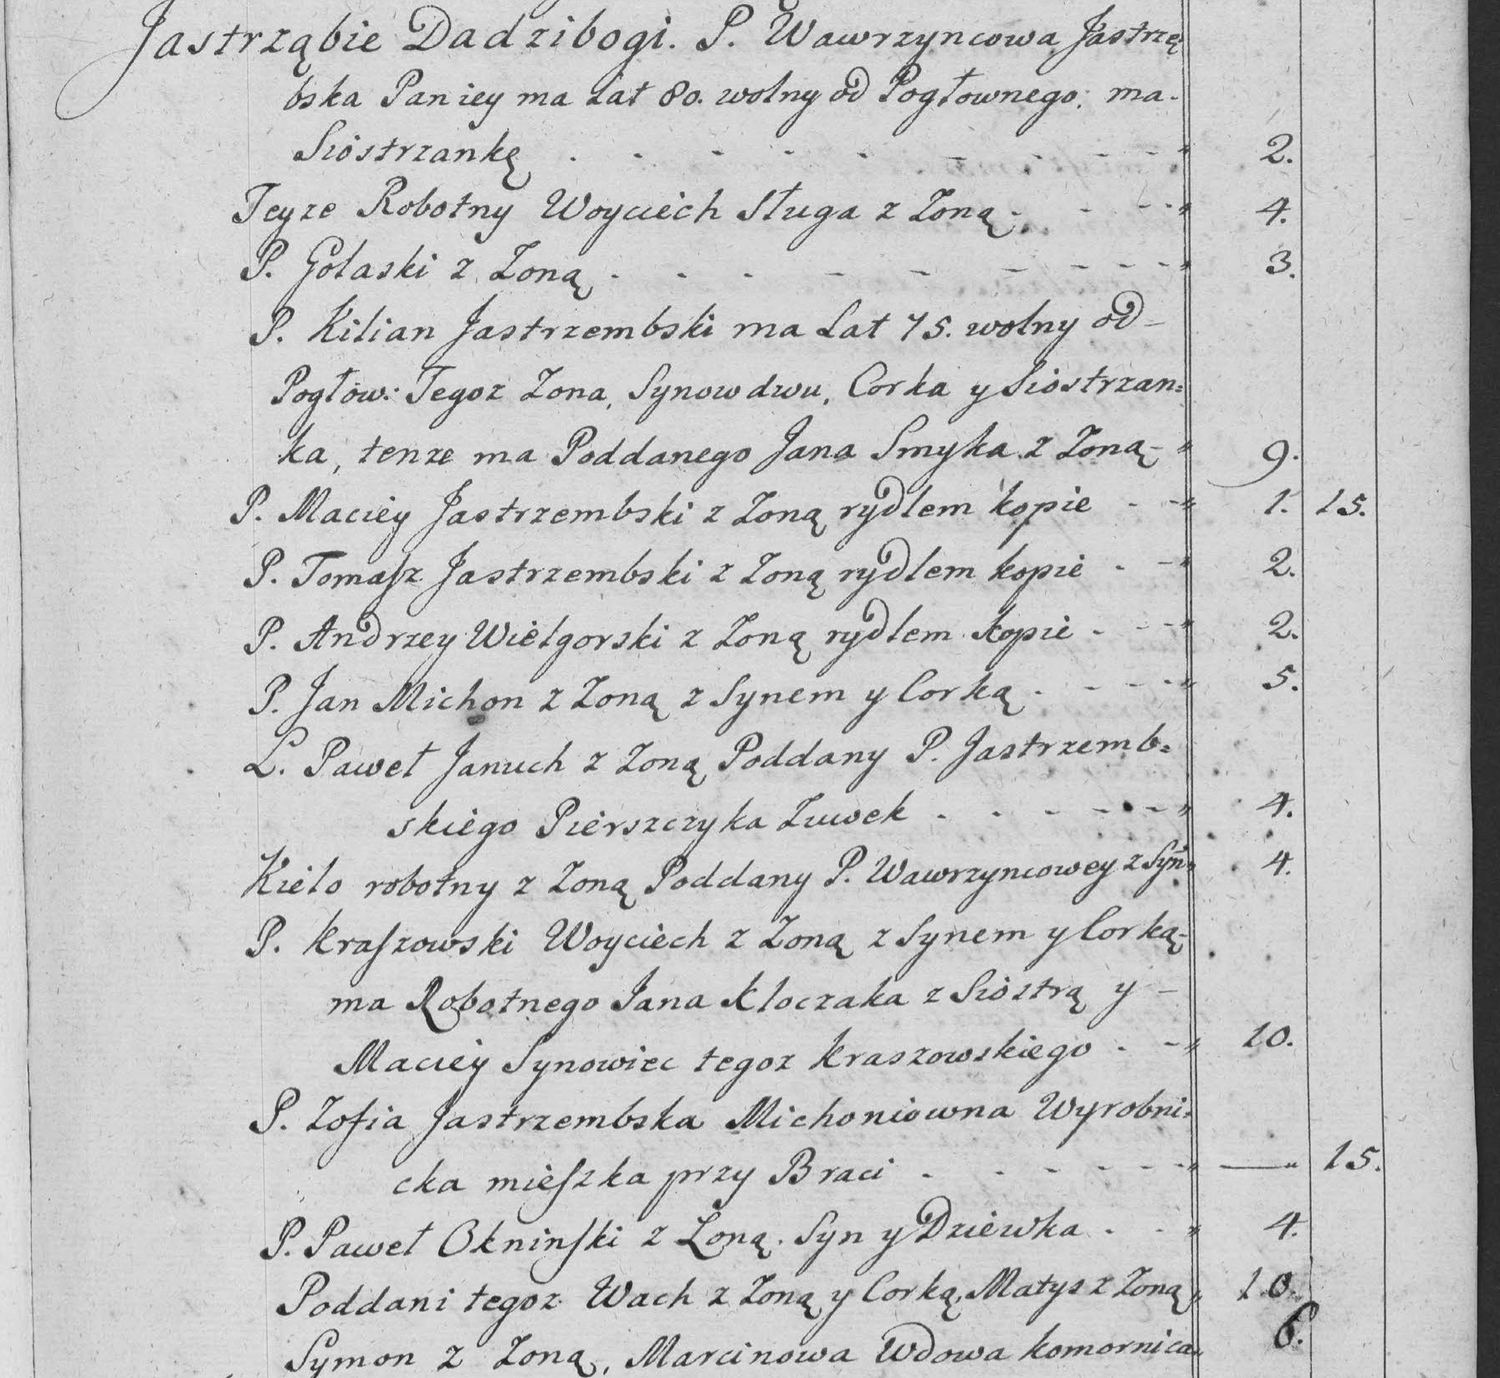 Jastrząbie Dadzibogi. P. Wawrzyncowa Jastrzę
bska Pan iey ma Lat 80. wolny od Pogłownego; ma-
Siostrzankę . - - - - - - - - " 2.
Teyze Robotny Woyciech Sługa z Zoną. - - - " 4.
P. Golaski z Zoną . - - - - - - - - " 3.
P. Kilian Jastrzembski ma Lat 75. wolny od -
Pogłow: Tegoz Zona, Synow dwu, Corka y Siostrzan=
ka, tenze ma Poddanego Jana Smyka z Zoną - " 9.
P. Maciey Jastrzembski z Zoną rydlem kopie - - " 1. 15.
P. Tomasz Jastrzembski z Zoną rydlem kopie - - " 2.
P. Andrzey Wielgorski z Zoną rydlem kopie - - - " 2.
P. Jan Michon z Zoną z Synem y Corką . - - - - " 5.
L. Paweł Januch z Zoną Poddany P. Jastrzemb=
skiego Pierszczyka Zuwek . - - - - - " 4.
Kielo robotny z Zoną Poddany P. Wawrzyncowey z Syn " 4.
P. Kraszowski Woyciech z Zoną z Synem y Corką-
ma Robotnego Jana Kloczaka z Siostrą y -
Maciey Synowiec tegoz Kraszowskiego . - " 10.
P. Zofia Jastrzembska Michoniowna Wyrobni=
cka mieszka przy Braci . - - - - - " — " 15.
P. Paweł Okninski z Zoną. Syn y Dziewka . - " 4.
Poddani tegoz Wach z Zoną y Corką, Matys z Zoną " 10.
Symon z Zoną, Marcinowa Wdowa komornica " 6.